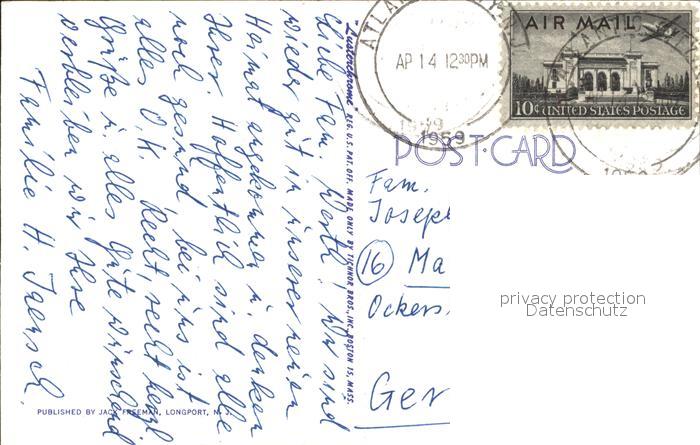 Liebe Fam. Wertl! Wir sind
wieder gut in unserer neuen
Heimat angekommen u. denken
Ihrer. Hoffentlich sind alle
noch gesund, bei uns ist
alles O.K. Recht, recht herzl.
Grüße u. alles Gute wünschend
verbleiben wir Ihre
Familie H. Jaensch.
"Lusterchrome" REG. U.S. PAT. OFF. MADE ONLY BY TICHNOR BROS., INC., BOSTON 15, MASS.
PUBLISHED BY JACK FREEMAN, LONGPORT, N. J.
AP 14 12 30PM
1959
AIR MAIL
10¢ UNITED STATES POSTAGE
POST CARD
Fam.
Joseph
16 Ma
Ockers
Ger
privacy protection
Datenschutz